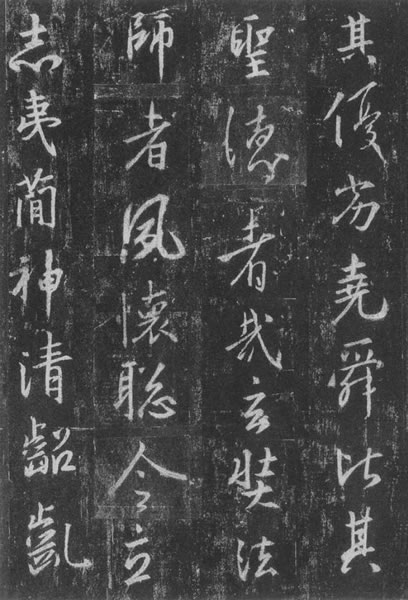 其優劣堯舜比其
聖德者哉玄奘法
師者夙懷聡令立
志夷簡神清齠齓